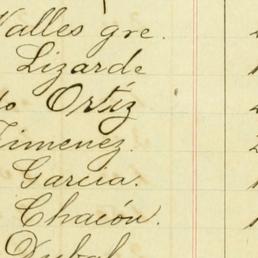 Valles gre.
Lizarde
Ortíz
Jimenez.
Garcia.
Chacón.
Dubal